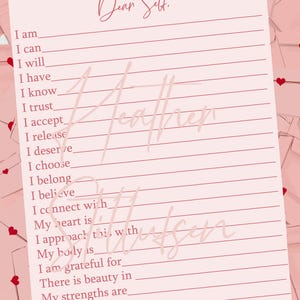 Dear Self,
I am
I can
I will
I have
I know
I trust
I accept
I release
I deserve
I choose
I belong
I believe
I connect with
My heart is
I approach this with
My body is
I am grateful for
There is beauty in
My strengths are
Heather